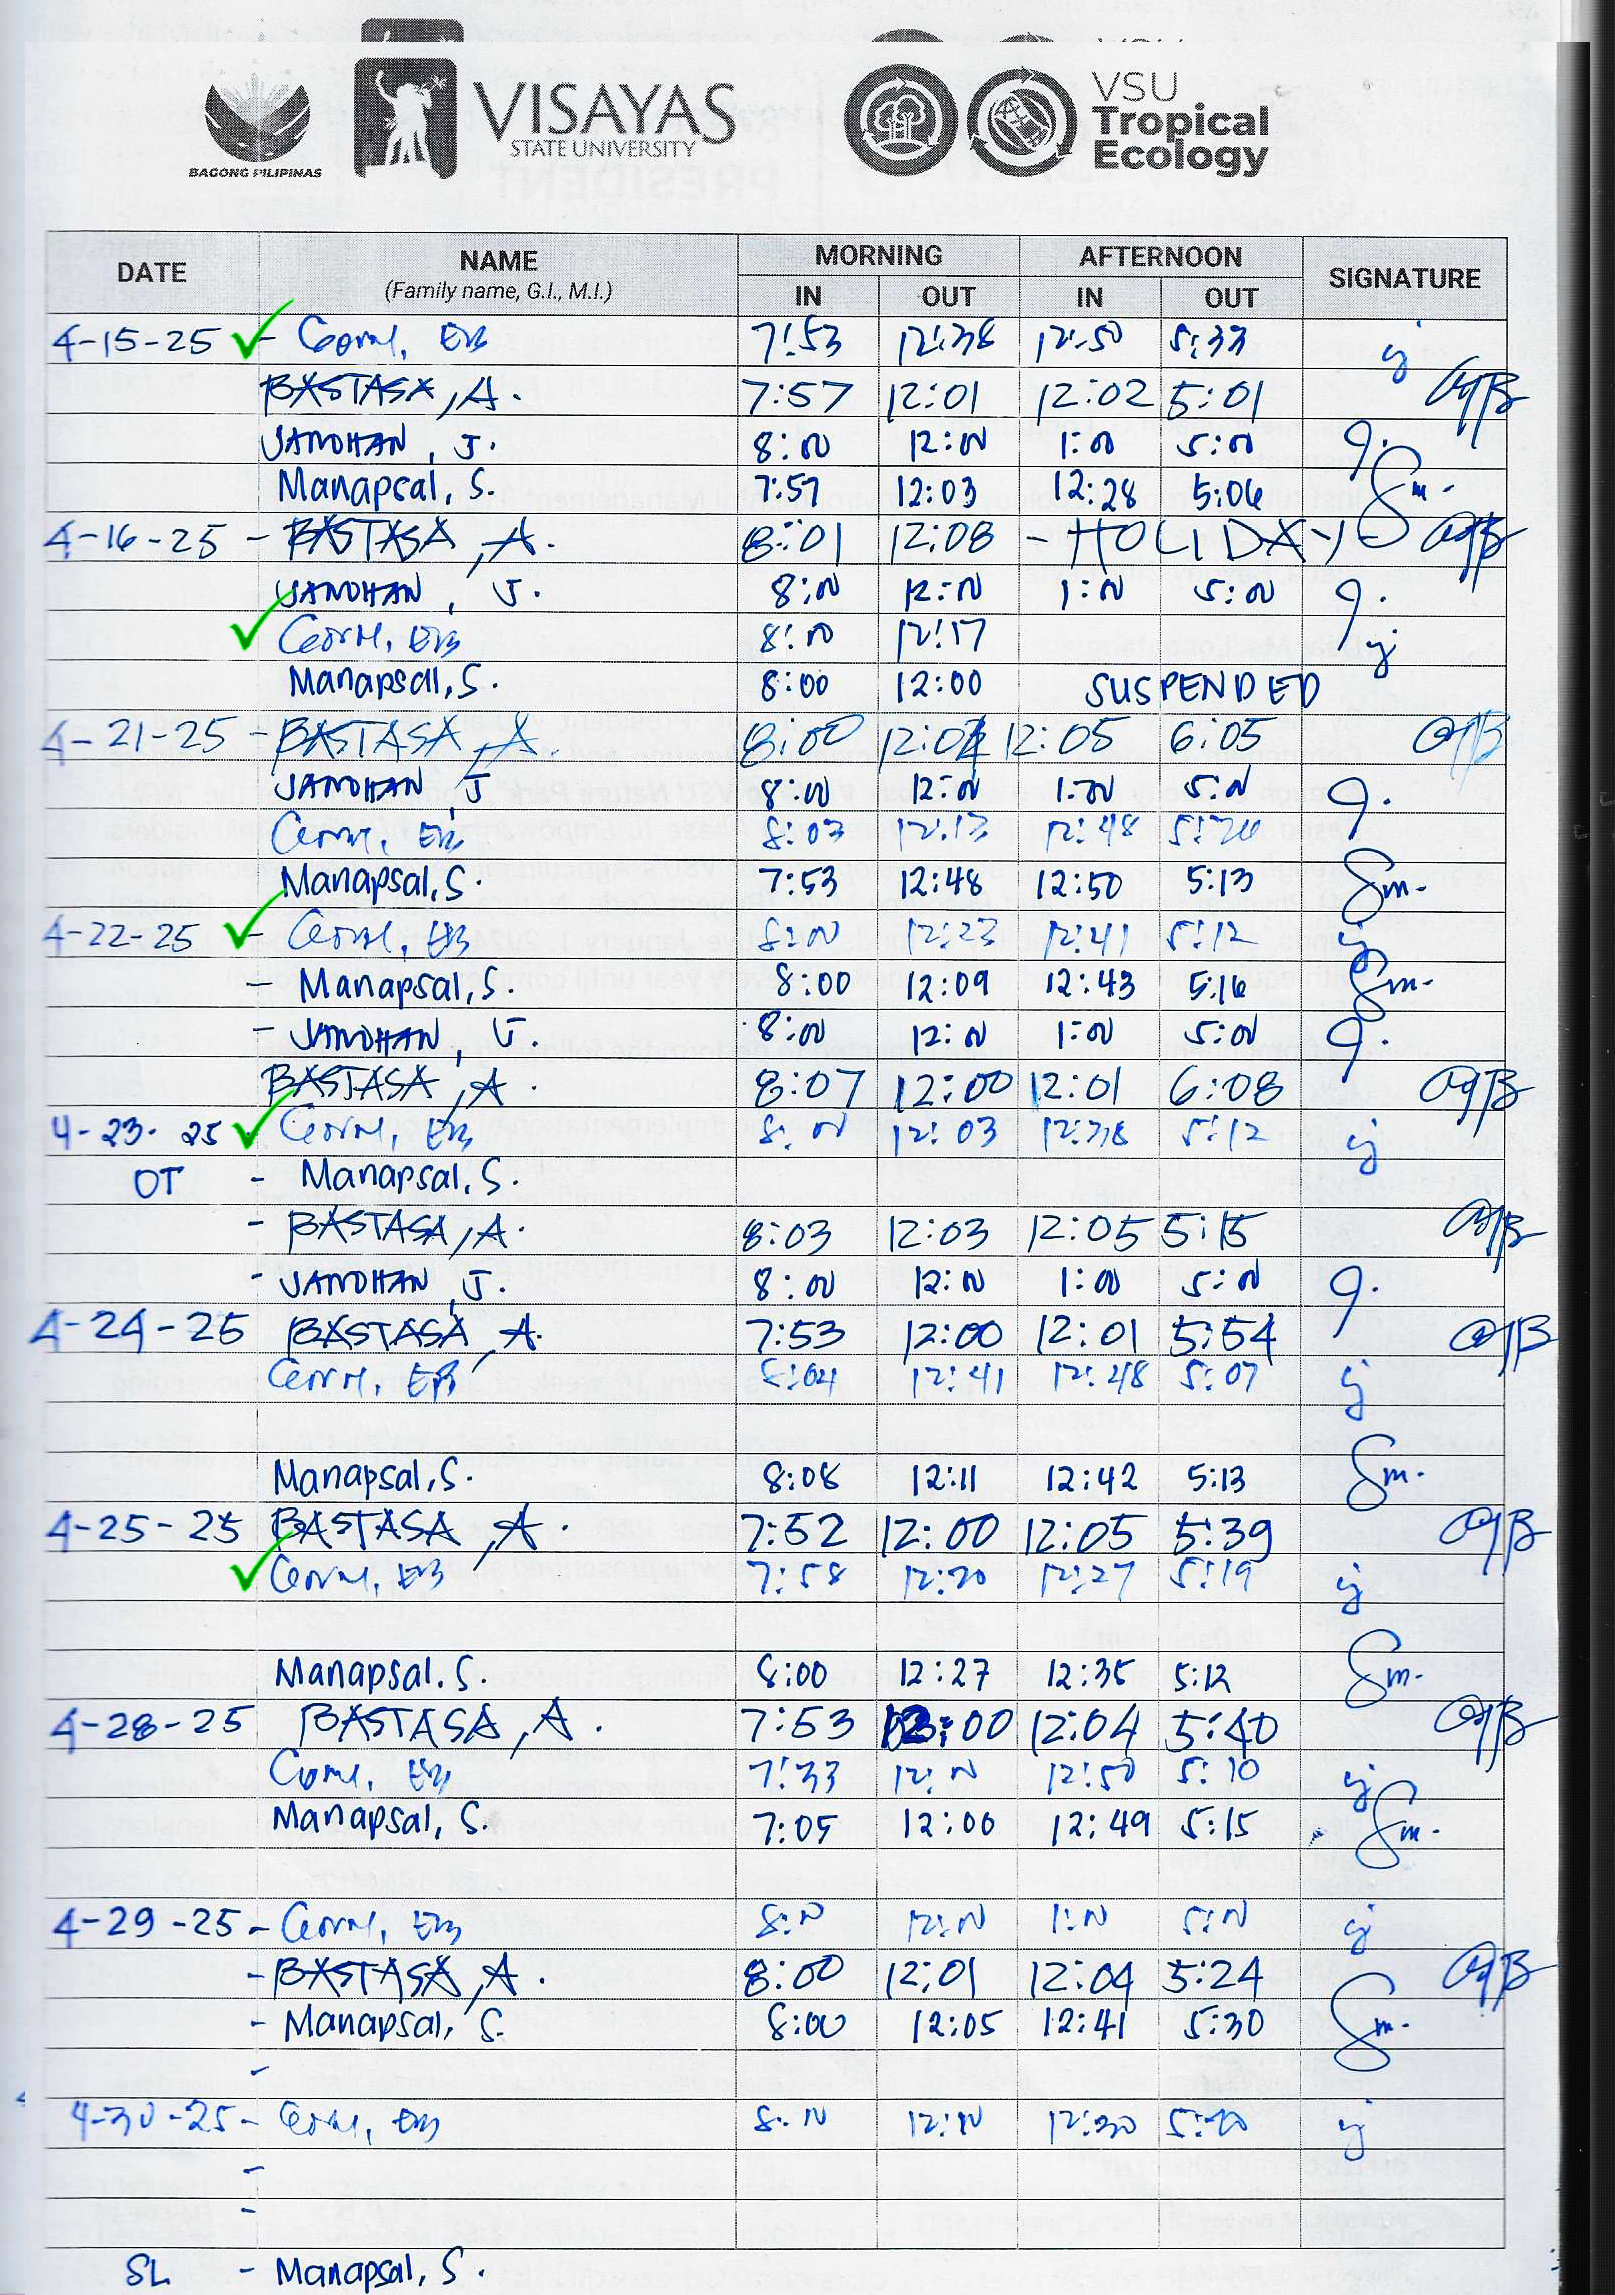 BAGONG PILIPINAS
VISAYAS
STATE UNIVERSITY
VSU
Tropical
Ecology
DATE NAME (Family name, G.I., M.I.) MORNING AFTERNOON SIGNATURE
IN OUT IN OUT
4-15-25 7:53 12:38 12:50 5:33
BASTASA, A. 7:57 12:01 12:02 5:01
JANDHAN, J. 8:00 12:00 1:00 5:00
Manapsal, S. 7:57 12:03 12:28 5:06 Sm.
4-16-25 - BASTASA, A. 8:01 12:08 - HOLIDAY
JANDHAN, J. 8:00 12:00 1:00 5:00
8:00 12:17
Manapsal, S. 8:00 12:00 SUSPENDED
4-21-25 - BASTASA, A. 8:00 12:05 6:05
JANDHAN, J 8:00 12:00 1:00 5:00
8:03 12:13 12:48
Manapsal, S. 7:53 12:48 12:50 5:13 Sm.
4-22-25 - 8:00 12:23 12:41 5:12
- Manapsal, S. 8:00 12:09 12:43 5:16 Sm.
- JANDHAN, J. 8:00 12:00 1:00 5:00
BASTASA, A. 8:07 12:00 12:01 6:08
4-23-25 8:00 12:03 12:38 5:12
OT - Manapsal, S.
- BASTASA, A. 8:03 12:03 12:05 5:15
- JANDHAN, J. 8:00 12:00 1:00 5:00
4-24-25 BASTASA, A. 7:53 12:00 12:01 5:54
8:04 12:41 12:48 5:07
Manapsal, S. 8:08 12:11 12:42 5:13 Sm.
4-25-25 BASTASA, A. 7:52 12:00 12:05 5:39
7:58 12:20 12:27 5:19
Manapsal, S. 8:00 12:27 12:35 5:12 Sm.
4-28-25 BASTASA, A. 7:53 12:00 12:04 5:40
7:33 12:00 12:50 5:10
Manapsal, S. 7:05 12:00 12:49 5:15 Sm.
4-29-25 - 8:00 12:00 1:00 5:00
- BASTASA, A. 8:00 12:01 12:04 5:24
- Manapsal, S. 8:00 12:05 12:41 5:30 Sm.
-
4-30-25 - 8:00 12:00 12:30
-
-
SL - Manapsal, S.